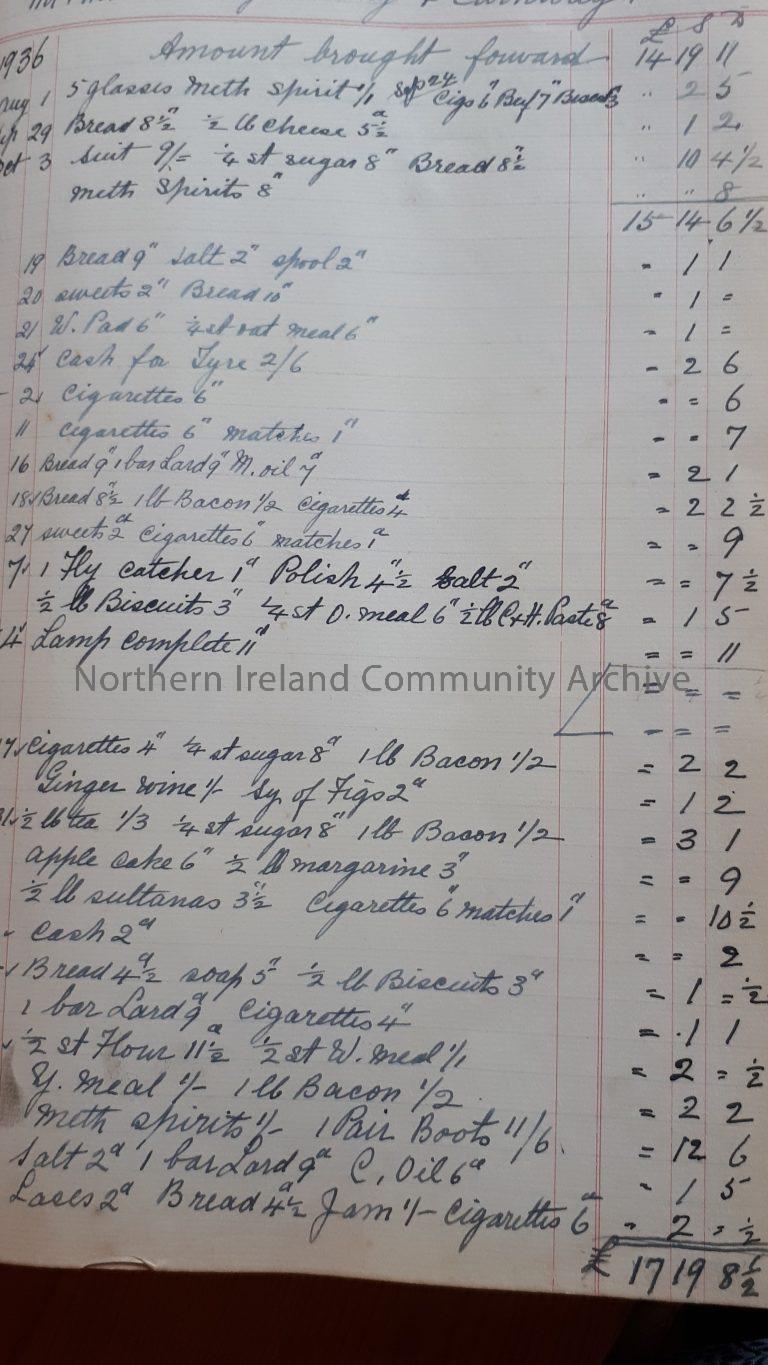 £ S D
1936 Amount brought forward 14 19 11
Aug 1 5 glasses Meth Spirit 1/1 Sep 24 Cigs 6" Beef 7" Biscuits 3 " 2 5
Sep 29 Bread 8½" ½ lb Cheese 5½ " 1 2
Oct 3 Suit 9/= ¼ st sugar 8" Bread 8½" " 10 4½
Meth Spirits 8" " " 8
15 14 6½
19 Bread 9" Salt 2" spool 2" - 1 1
20 sweets 2" Bread 10" " 1 =
21 W. Pad 6" ¼ st oat meal 6" - 1 =
24 Cash for Tyre 2/6 - 2 6
2 Cigarettes 6" - = 6
11 Cigarettes 6" matches 1" - - 7
16 Bread 9" 1 bar Lard 9" M. oil 7" = 2 1
18 Bread 8½ 1 lb Bacon 1/2 Cigarettes 4d = 2 2½
27 sweets 2d Cigarettes 6" matches 1d = = 9
7 1 Fly Catcher 1" Polish 4½" Salt 2" = = 7½
½ lb Biscuits 3" ¼ st O. meal 6" ½ lb C & H. Paste 8d = 1 5
4 Lamp complete 11" = = 11
Northern Ireland Community Archive
= = =
- = =
7 Cigarettes 4" ¼ st sugar 8d 1 lb Bacon 1/2 = 2 2
Ginger wine 1/- Sy of Figs 2d = 1 2
½ lb tea 1/3 ¼ st sugar 8" 1 lb Bacon 1/2 = 3 1
apple cake 6" ½ lb margarine 3" = = 9
½ lb sultanas 3½" Cigarettes 6" matches 1" = - 10½
Cash 2d = = 2
Bread 4½d soap 5" ½ lb Biscuits 3d = 1 = ½
1 bar Lard 9d Cigarettes 4" = 1 1
½ st Flour 11½d ½ st W. meal 1/1 = 2 = ½
Y. Meal 1/- 1 lb Bacon 1/2 = 2 2
Meth spirits 1/- 1 Pair Boots 11/6 = 12 6
Salt 2d 1 bar Lard 9d C, Oil 6d - 1 5
Laces 2d Bread 4½d Jam 1/- Cigarettes 6d - 2 = ½
£ 17 19 8½